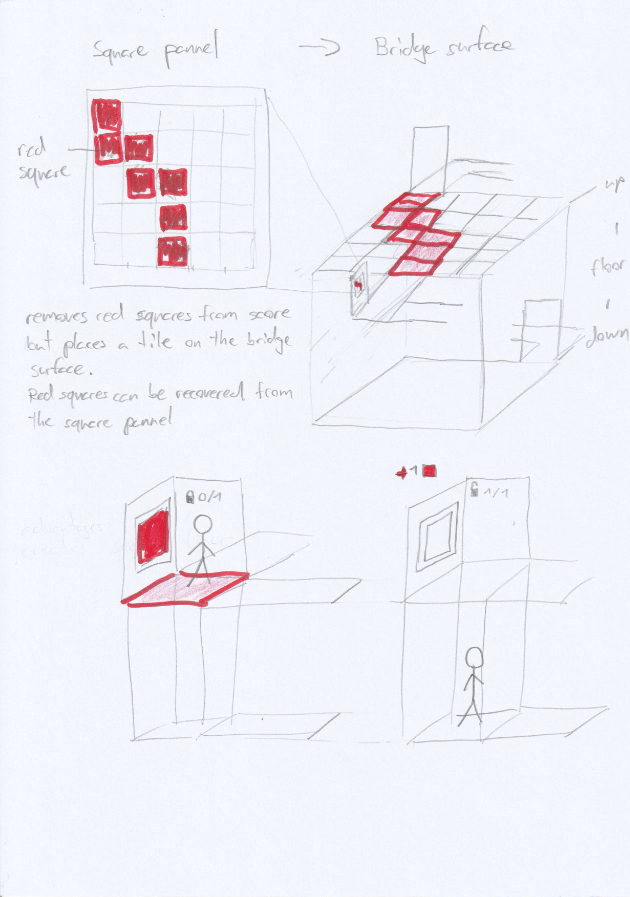 Square pannel → Bridge surface
red
square
up
floor
down
removes red squares from score
but places a tile on the bridge
surface.
Red squares can be recovered from
the square pannel
0/1
1
1/1